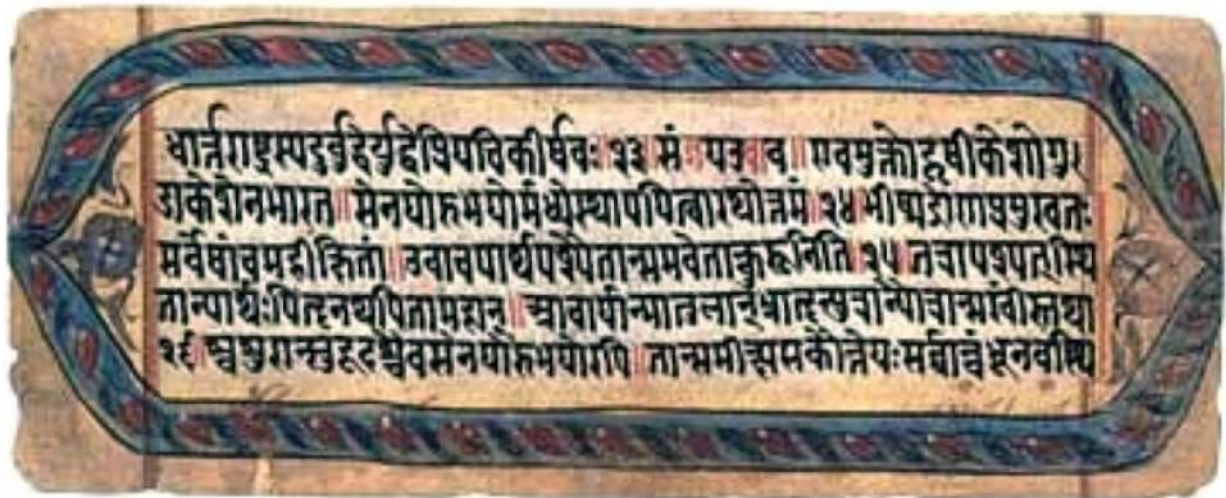 धार्त्तराष्ट्रस्यदुर्बुद्धेर्युद्धेप्रियचिकीर्षवः॥२३॥सं॰॥यउवाच॥एवमुक्तोहृषीकेशोगु
डाकेशेनभारत॥सेनयोरुभयोर्मध्येस्थापयित्वारथोत्तमं॥२४॥भीष्मद्रोणप्रमुखतः
सर्वेषांचमहीक्षितां॥उवाचपार्थपश्यैतान्समवेतान्कुरूनिति॥२५॥तत्रापश्यत्स्थि
तान्पार्थःपितॄनथपितामहान्॥आचार्यान्मातुलान्भ्रातॄन्पुत्रान्पौत्रान्सखींस्तथा
२६॥श्वशुरान्सुहृदश्चैवसेनयोरुभयोरपि॥तान्समीक्ष्यसकौंतेयःसर्वान्बंधूनवस्थि